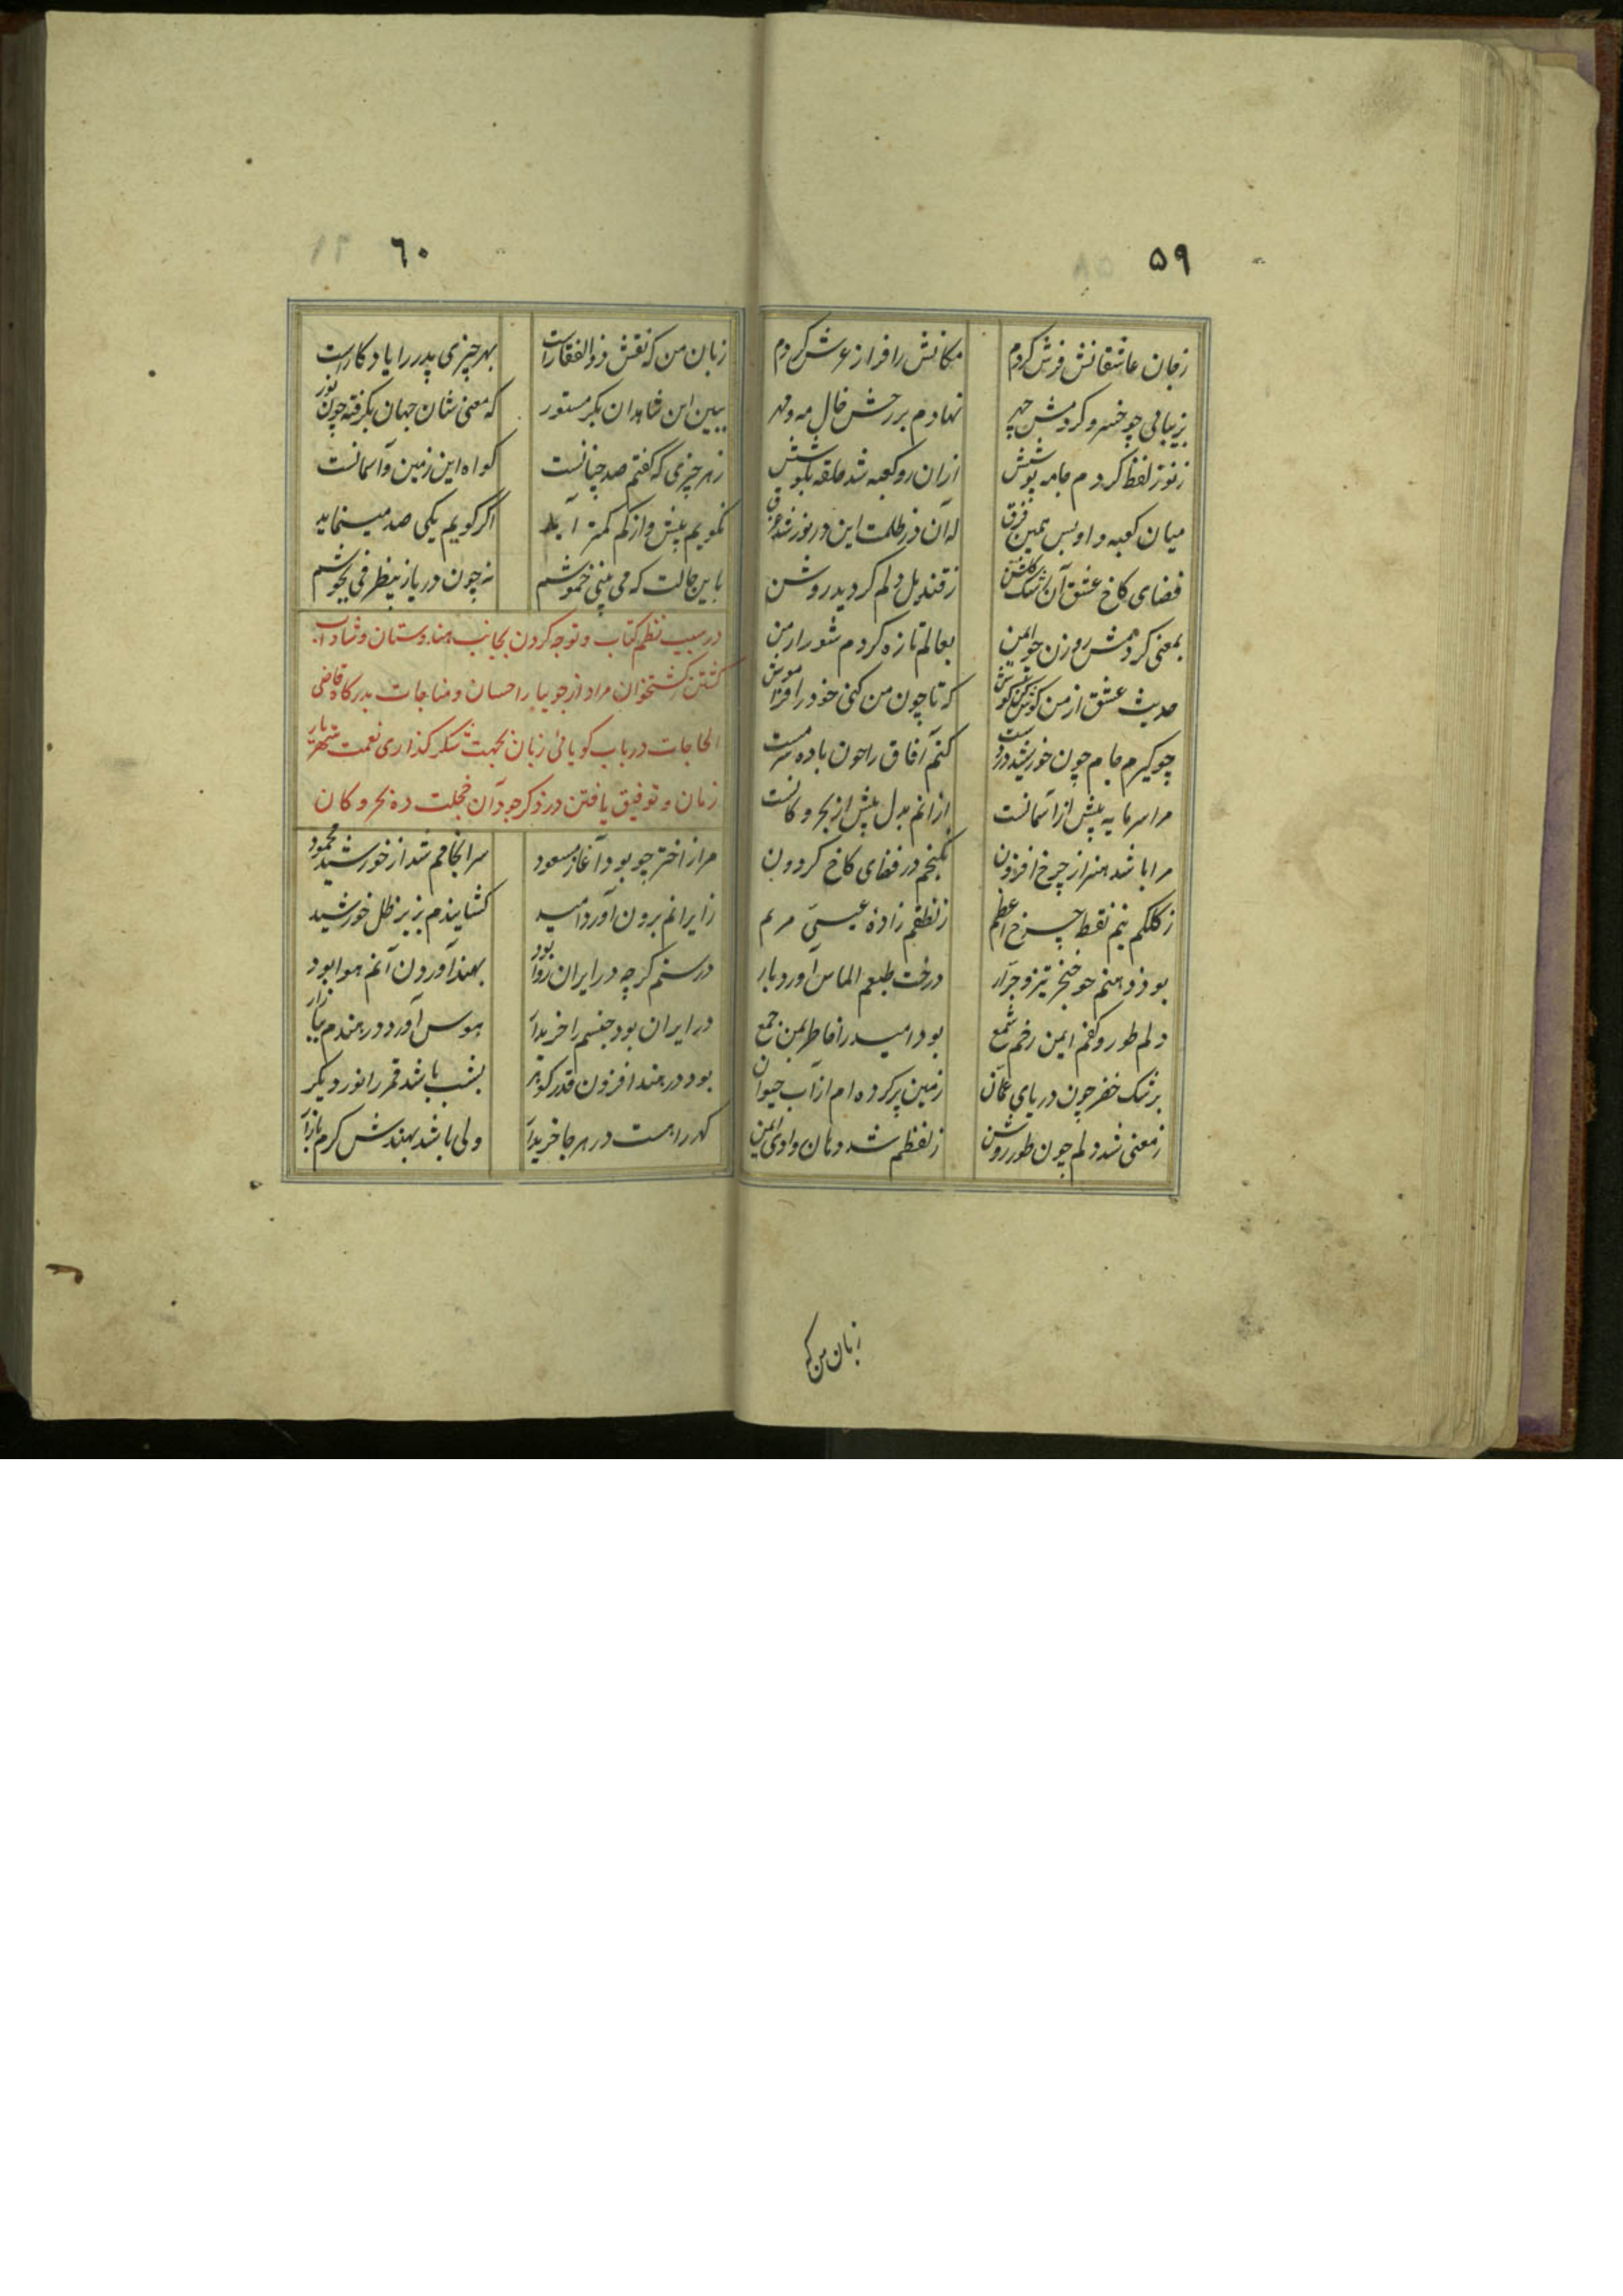 ۵۹
زجان عاشقانش فرش کردم مکانش را فراز عرش کردم
بزیبائی چو خسرو کردمش چهر نهادم بر رخش خال مه و مهر
زنور لفظ کردم جامه پوشش ازان رو کعبه شد حلقه بگوشش
میان کعبه و او بس همین فرق که آن در ظلمت این در نور شد غرق
فضای کاخ عشق آن رشک گلشن زقندیل دلم کردید روشن
بمعنی کردمش روزن چو ایمن بعالم تازه کردم شور ارمن
حدیث عشق از من کوش کن کوش که تا چون من کنی خود را فراموش
چو کیرم جام چون خورشید در دست کنم آفاق را چون باده سرمست
مرا سرمایه پیش از آسمانست ازانم بذل پیش از بحر و کانست
مرا باشد هنر از چرخ افزون نکنجم در فضای کاخ کردون
زکلکم نیم نقطه چرخ اعظم زنطقم زاده عیسی مریم
بود ذهنم چو خنجر تیز و جرار درخت طبعم الماس آورد بار
دلم طور و کفم ایمن رخم شمع بود امید را خاطر بمن جمع
برشک خضر چون دریای عمان زمین پر کرده ام از آب حیوان
زمعنی شد دلم چون طور روشن زلفظم شد دهان وادی ایمن
زبان من که
۶۰
زبان من که نقش ذوالفقار است بهر چیزی پدر را یادکار است
ببین این شاهدان بکر مستور که معنی شان جهان بکرفته چون نور
زهر چیزی که کفتم صد چنانست کواه این زمین و آسمانست
نکویم پیش و از کم کمتر آید اگر کویم یکی صد مینماید
باین حالت که می بینی خموشم نه چون دریا زبیظرفی بجوشم
در سبب نظم کتاب و توجه کردن بجانب هندوستان و شاداب
کشتن کشتخوان مراد از جویبار احسان و مناجات بدرکاه قاضی
الحاجات در باب کویائی زبان بجهت شکر کذاری نعمت شهریار
زمان و توفیق یافتن در ذکر جود آن خجلت ده بحر و کان
مرا از اختر چو بود آغاز مسعود سرانجامم شد از خورشید محمود
زایرانم برون آورد امید کشانیدم بزیر ظل خورشید
درستم کرچه در ایران روا بود بهند آوردن آنم هوا بود
در ایران بود جنسم را خریدار هوس آورد در هندم ببازار
بود در هند افزون قدر کوهر بشب باشد قمر را نور دیکر
کهر را هست در هر جا خریدار ولی باشد بهندش کرم بازار